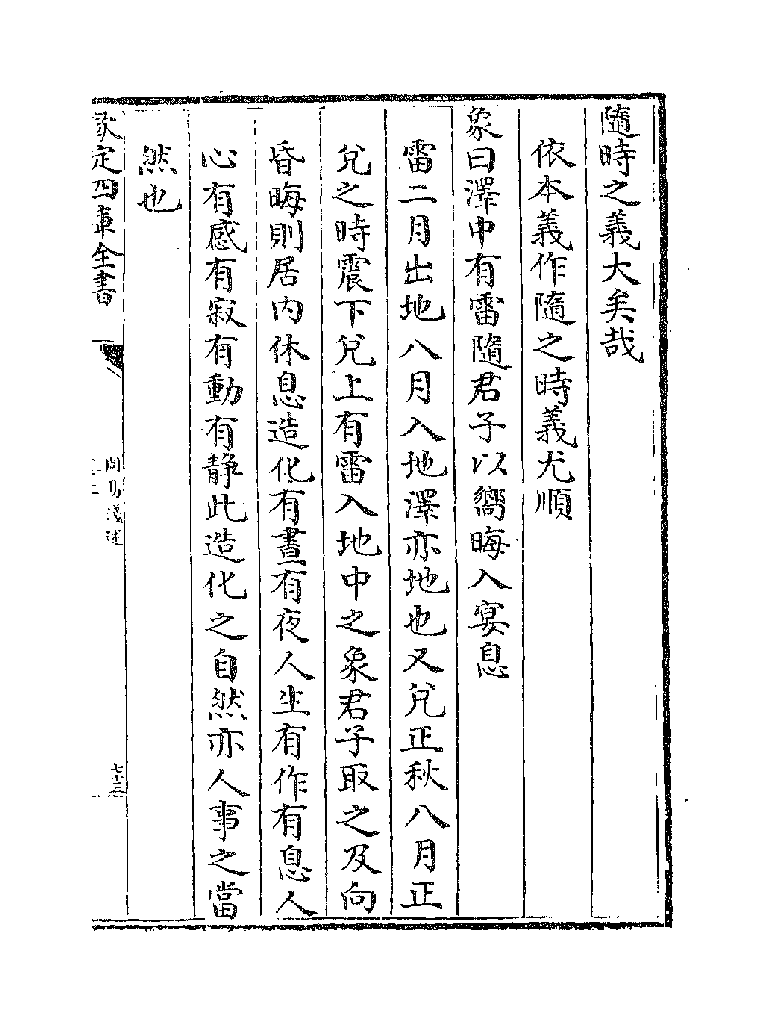 隨時之義大矣哉
依本義作隨之時義尤順
象曰澤中有雷隨君子以嚮晦入宴息
雷二月出地八月入地澤亦地也又兌正秋八月正
兌之時震下兌上有雷入地中之象君子取之及向
昏晦則居内休息造化有晝有夜人生有作有息人
心有感有寂有動有靜此造化之自然亦人事之當
然也
欽定四庫全書